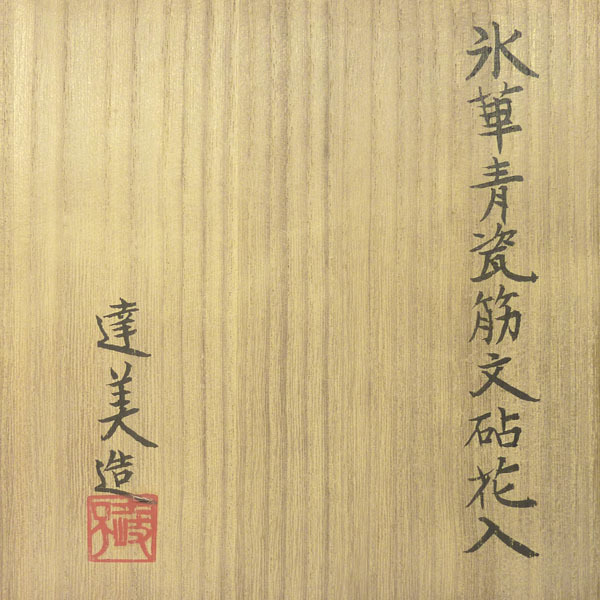 氷華青瓷筋文砧花入
達美造